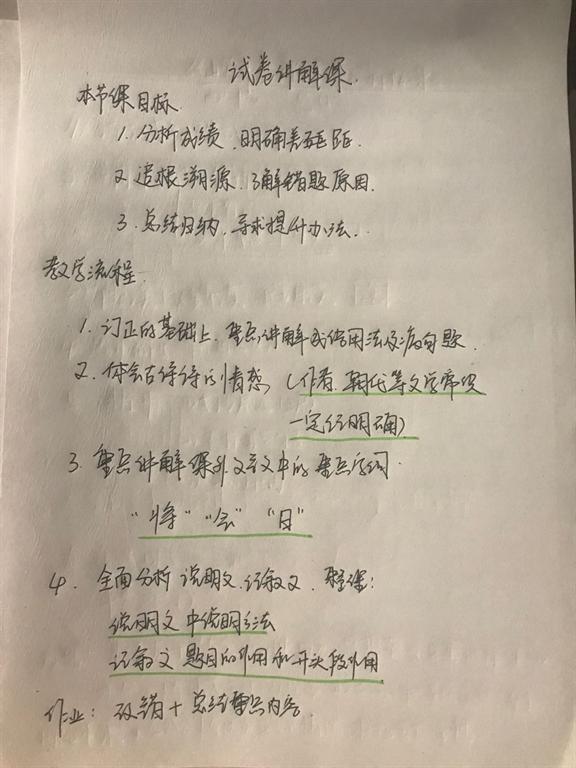 试卷讲解课.
本节课目标
1. 分析成绩,明确差距.
2. 追根溯源,了解错题原因.
3. 总结归纳,寻求提升办法.
教学流程:
1. 订正的基础上,重点讲解成语用法及病句题.
2. 体会古诗诗的情感 (作者、朝代等文学常识
一定经明确)
3. 重点讲解课外文言文中的重点字词.
“将” “会” “日”
4. 全面分析 说明文、记叙文,
说明文中说明方法
记叙文 题目的作用和开头段作用
作业: 改错 + 总结重点内容.